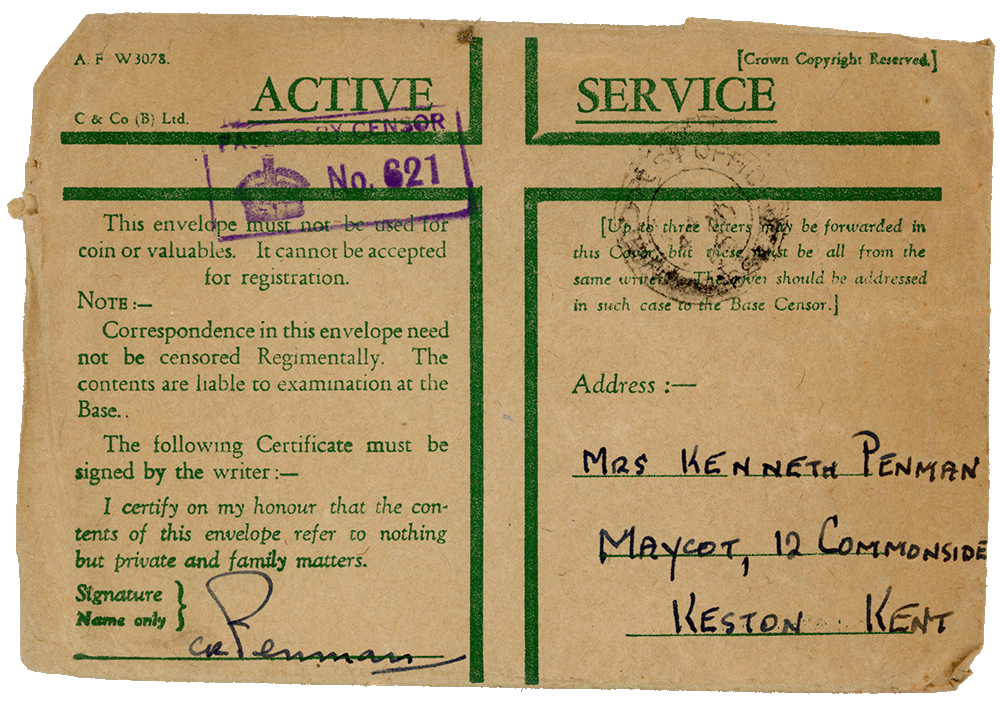 A. F W3078.
[Crown Copyright Reserved.]
ACTIVE SERVICE
C & Co (B) Ltd.
PASSED BY CENSOR
No. 621
This envelope must not be used for
coin or valuables. It cannot be accepted
for registration.
NOTE :—
Correspondence in this envelope need
not be censored Regimentally. The
contents are liable to examination at the
Base..
The following Certificate must be
signed by the writer :—
I certify on my honour that the con-
tents of this envelope refer to nothing
but private and family matters.
Signature
Name only
CK Penman
POST OFFICE
[Up to three letters may be forwarded in
this Cover, but these must be all from the
same writer. The cover should be addressed
in such case to the Base Censor.]
Address :—
MRS KENNETH PENMAN
MAYCOT, 12 COMMONSIDE
KESTON KENT